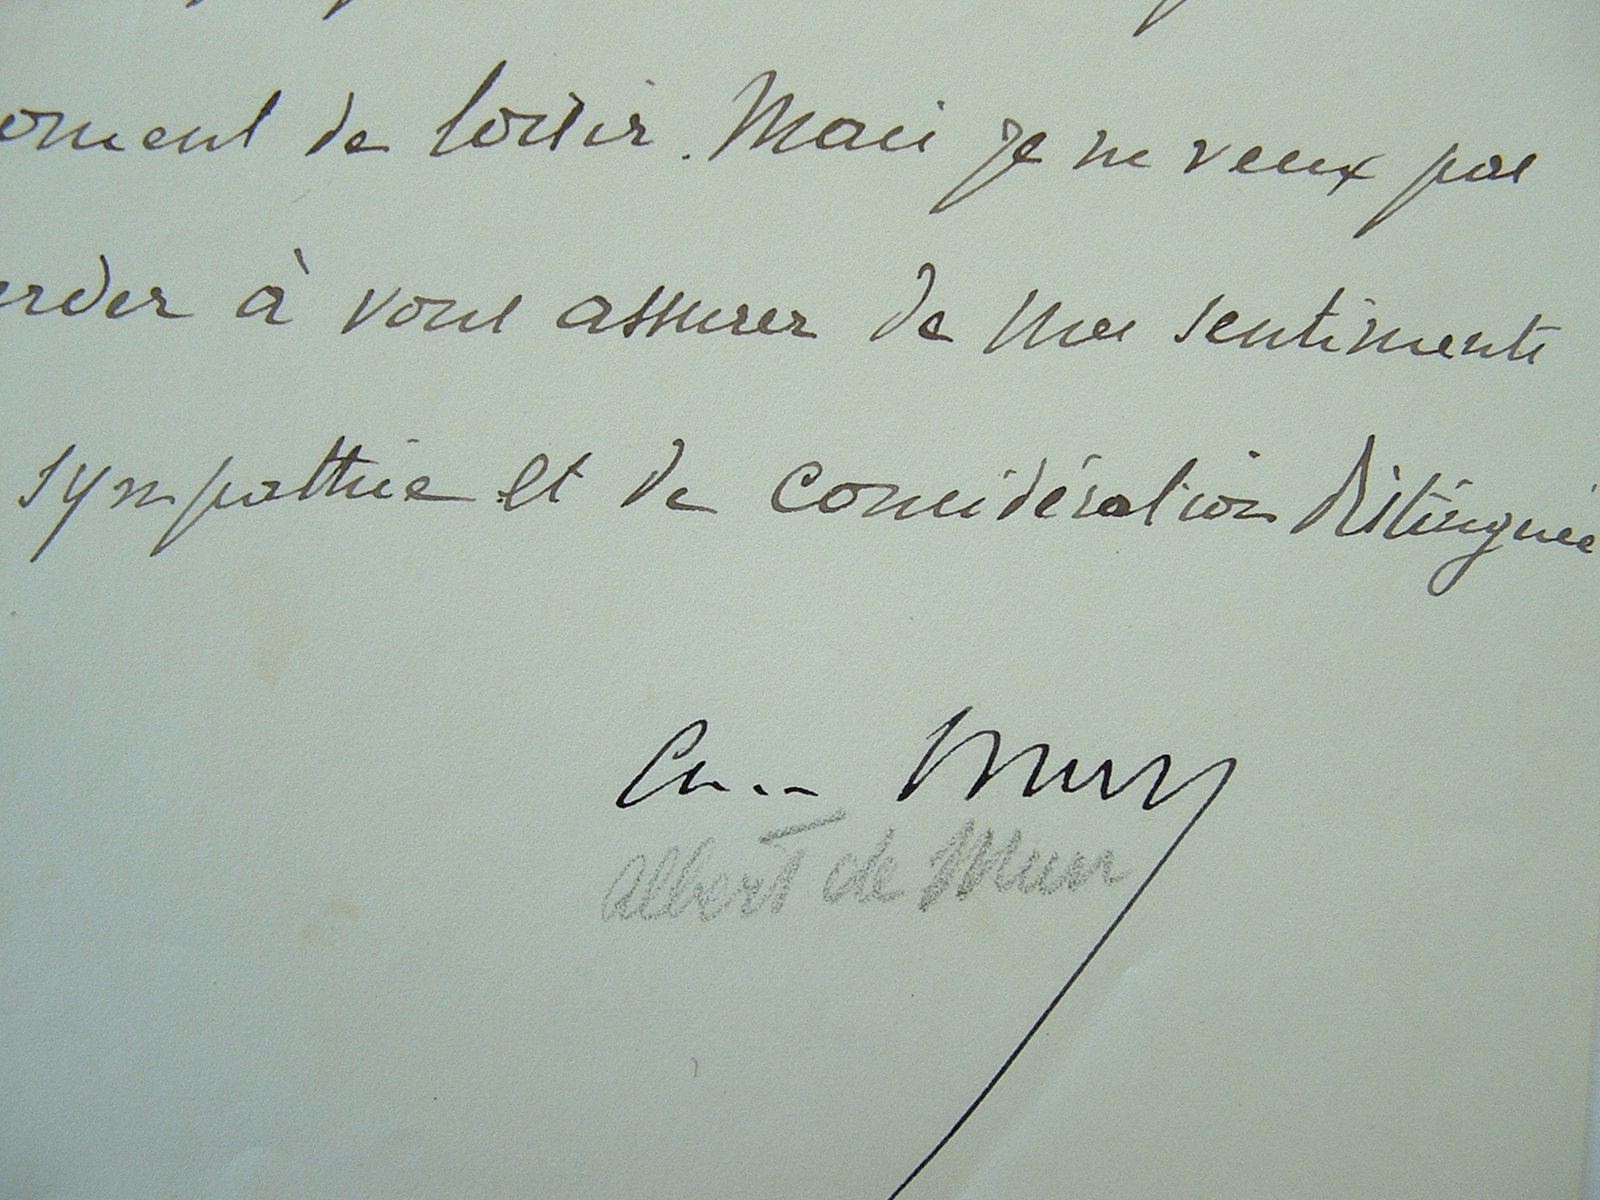 oment de loisir. Mais je ne veux pas
rder à vous assurer de mes sentiments
sympathie et de considération distinguée
Mun
Albert de Mun